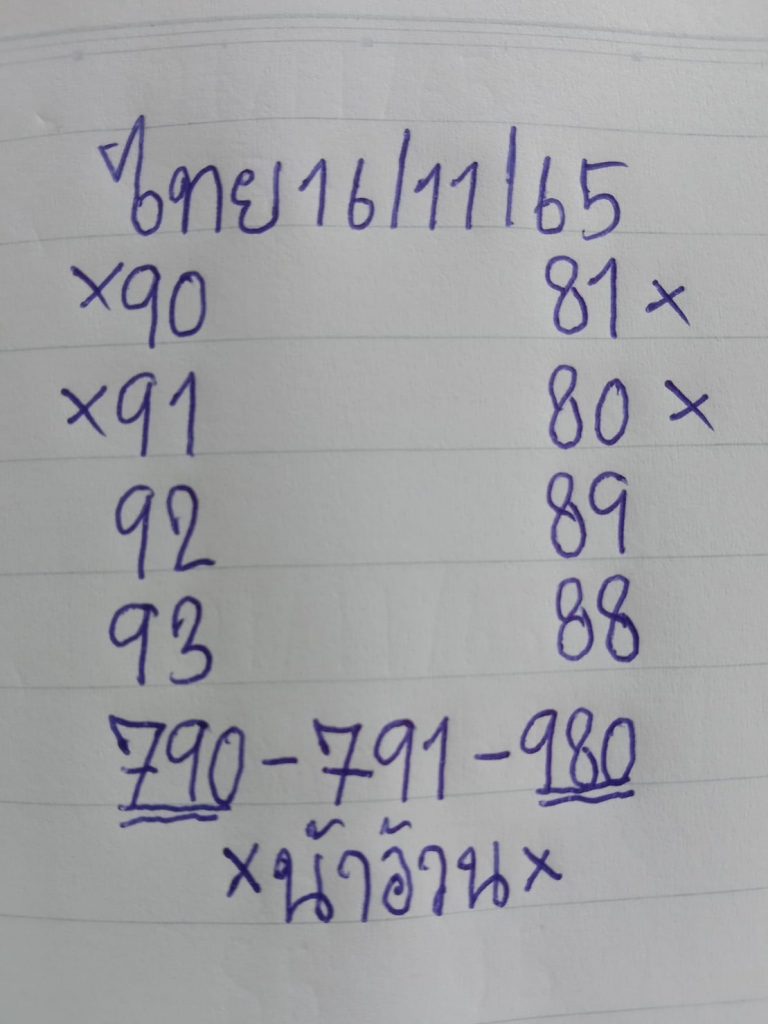 ไทย 16/11/65
×90 81×
×91 80×
92 89
93 88
790-791-980
×น้าอ้วน×